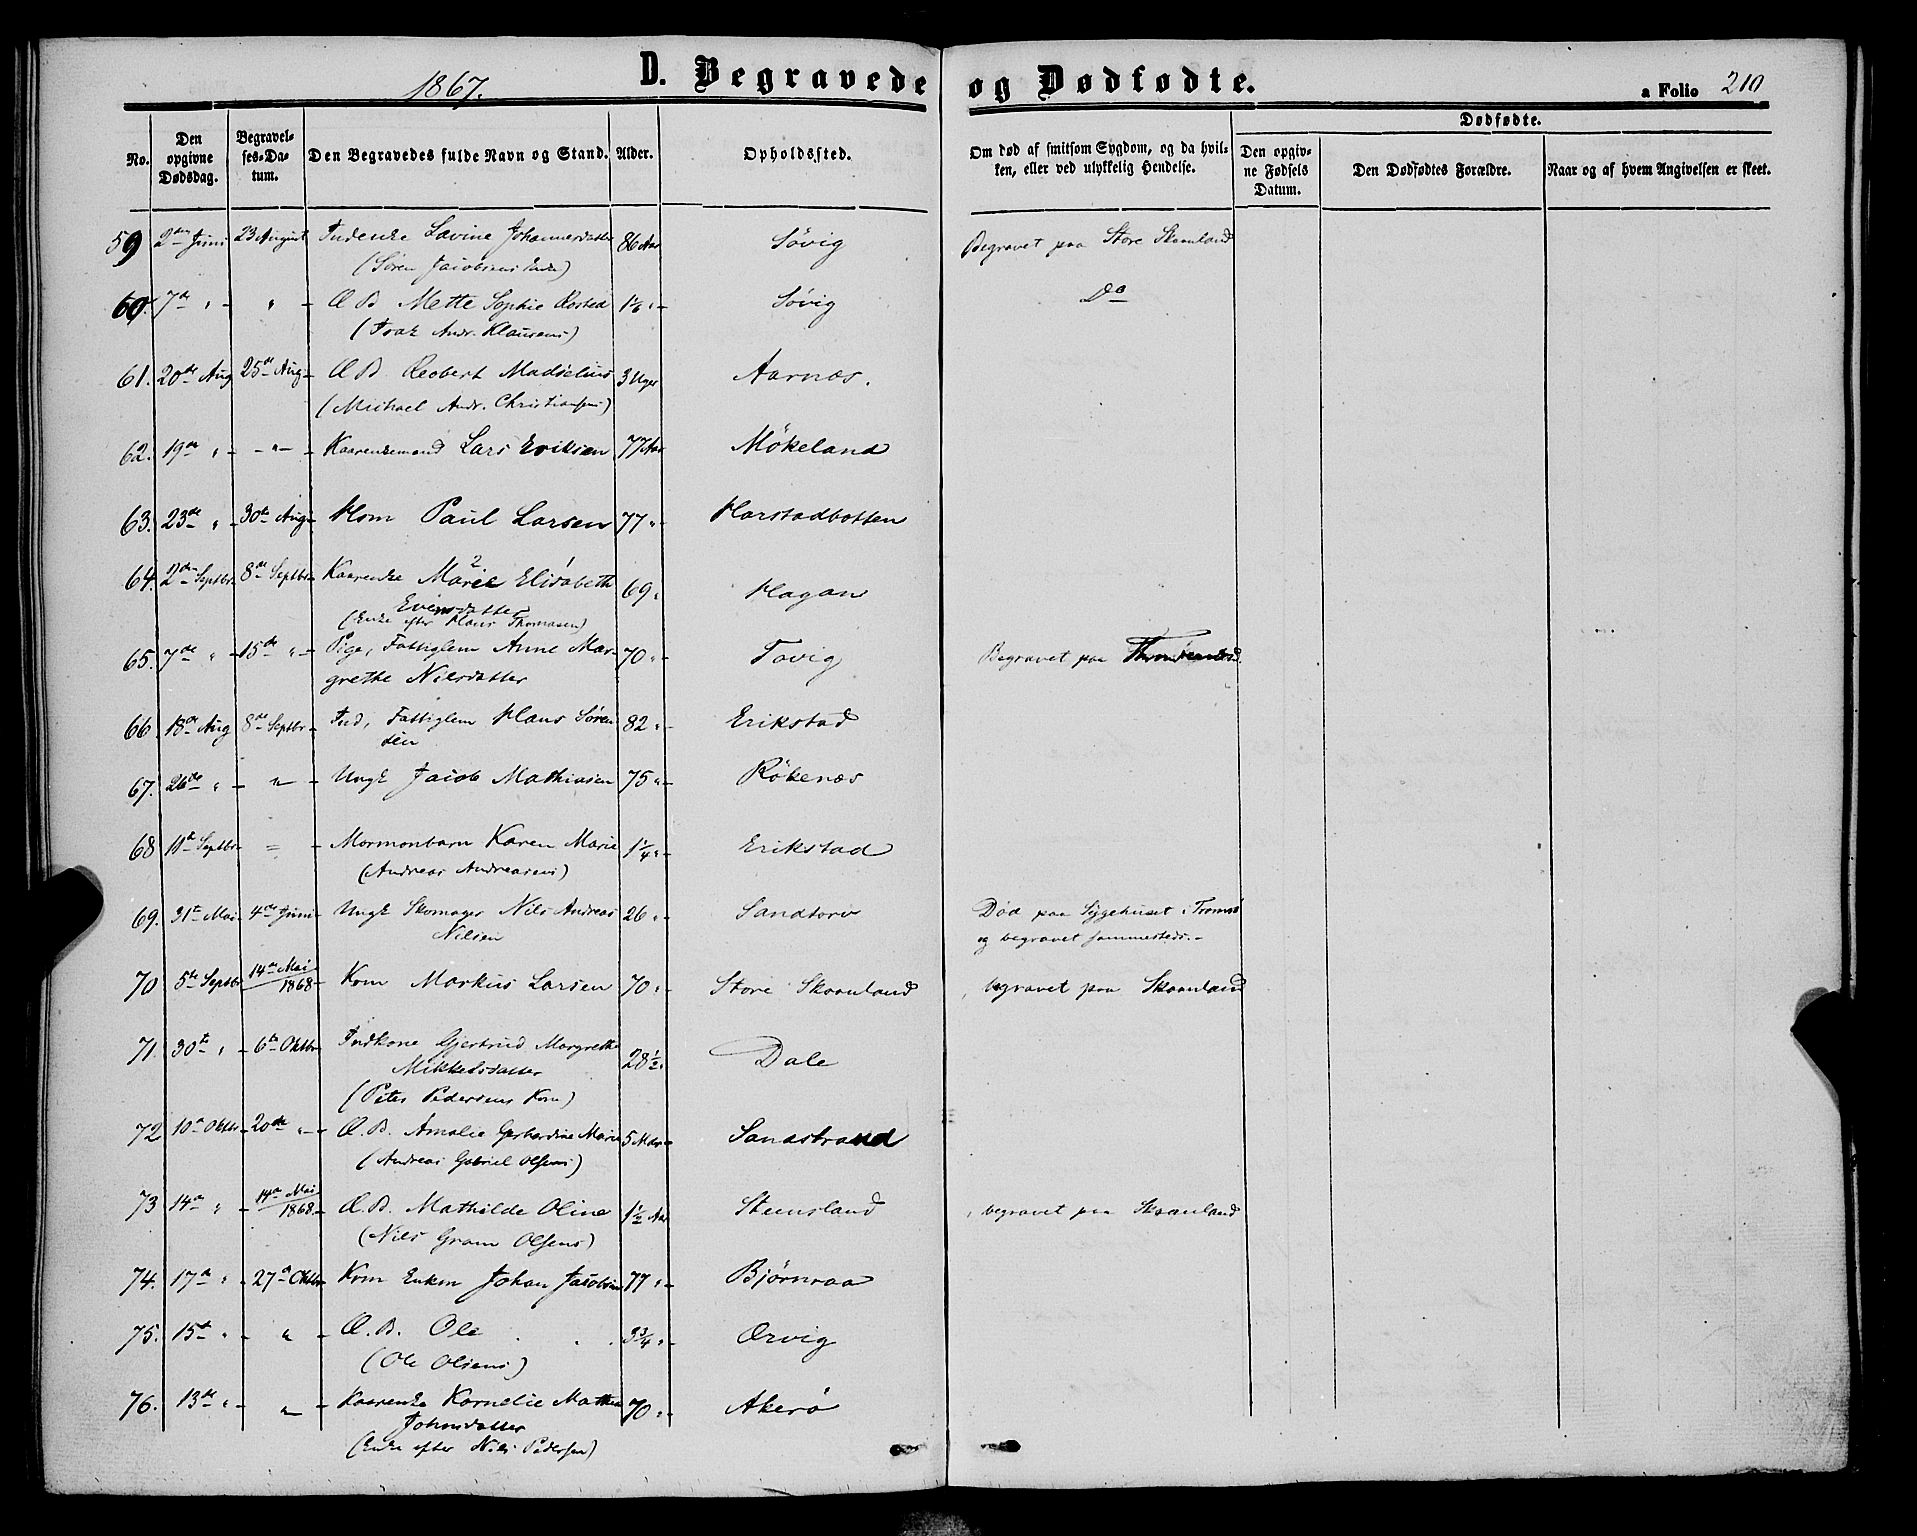 1867. D. Begravede og Dødfødte. a Folio 210
No. Den opgivne Dødsdag. Begravelses-Datum. Den Begravedes fulde Navn og Stand. Alder. Opholdssted. Om død af smitsom Sygdom, og da hvilken, eller ved ulykkelig Hendelse. Dødfødte. Den opgivne Fødsels Datum. Den Dødfødtes Forældre. Naar og af hvem Angivelsen er skeet.
59 2den Juni 23 August Indenke Lavine Johannesdatter 86 Aar Søvig Begravet paa Store Skaanland
(Søren Jacobsens Enke)
60. 7de " - " - Æ B Mette Sophie Rosted "- Søvig Do
( Andr. Klausens)
61. 20de Aug 25de Aug- Æ B Reobert Madselius 3 Uger Aarnæs.
(Michael Andr. Christiansens)
62. 19de " - - " - - Kaarenkemand Lars Eriksen 77 Aar Mökeland
63. 23de " - 30te Aug- Hom Paul Larsen 77 "- Harstadbotten
64. 2de Septbr- 8de Septbr- Kaarenke Marie Elisabeth 69 " Hagan
Evensdatter
(Enke efter Hans Thomasen)
65. 7de " - 15de " - Pige, Fattiglem Anne Mar- 70 "- Tovig Begravet paa
grethe Nilsdatter
66 18de Aug 8de Septbr- Ind, Fattiglem Hans Sören 82 "- Erikstad
sen
67. 26de " - " - Ungk Jacob Mathiasen 75 "- Rökenæs
68 11te Septbr- = - Mormonbarn Karen Marie 1¼ "- Erikstad
(Andreas Andreasens)
69. 31te Mai- 4de Juni- Ungk Skomager Nils Andreas 26 "- Sandtorv Död paa Sygehuset i Tromsö
Nilsen og begravet sammesteds.-
70 5te Septbr 14de Mai 1868- Kom Markus Larsen 70 "- Store Skaanland begravet paa Skaanland
71. 30te " - 6te Oktbr Indkone Gjertrud Margrethe 28½ " Dale
Mikkelsdatter
(Peter Pedersens Kone)
72 10de Oktbr- 20de " - Æ. B. Amalie Gerhardine Marie 5 Mdr- Sandstrand
(Andreas Gabriel Olsens)
73 14de " - 14de Mai 1868.- Æ. B. Mathilde Oline 1½ Aar Steensland begravet paa Skaanland
(Nils Gram Olsens)
74. 17de " - 27de Oktbr Kom Enkm Johan Jacobsen 77 "- Björnraa
75. 15te " - " - Æ. B. Ole 3¾ "- Ærvig
(Ole Olsens)
76. 13de " - " - Kaarenke Kornelie Mathea 70 "- Akerö
Johnsdatter
(Enke efter Nils Pedersen)